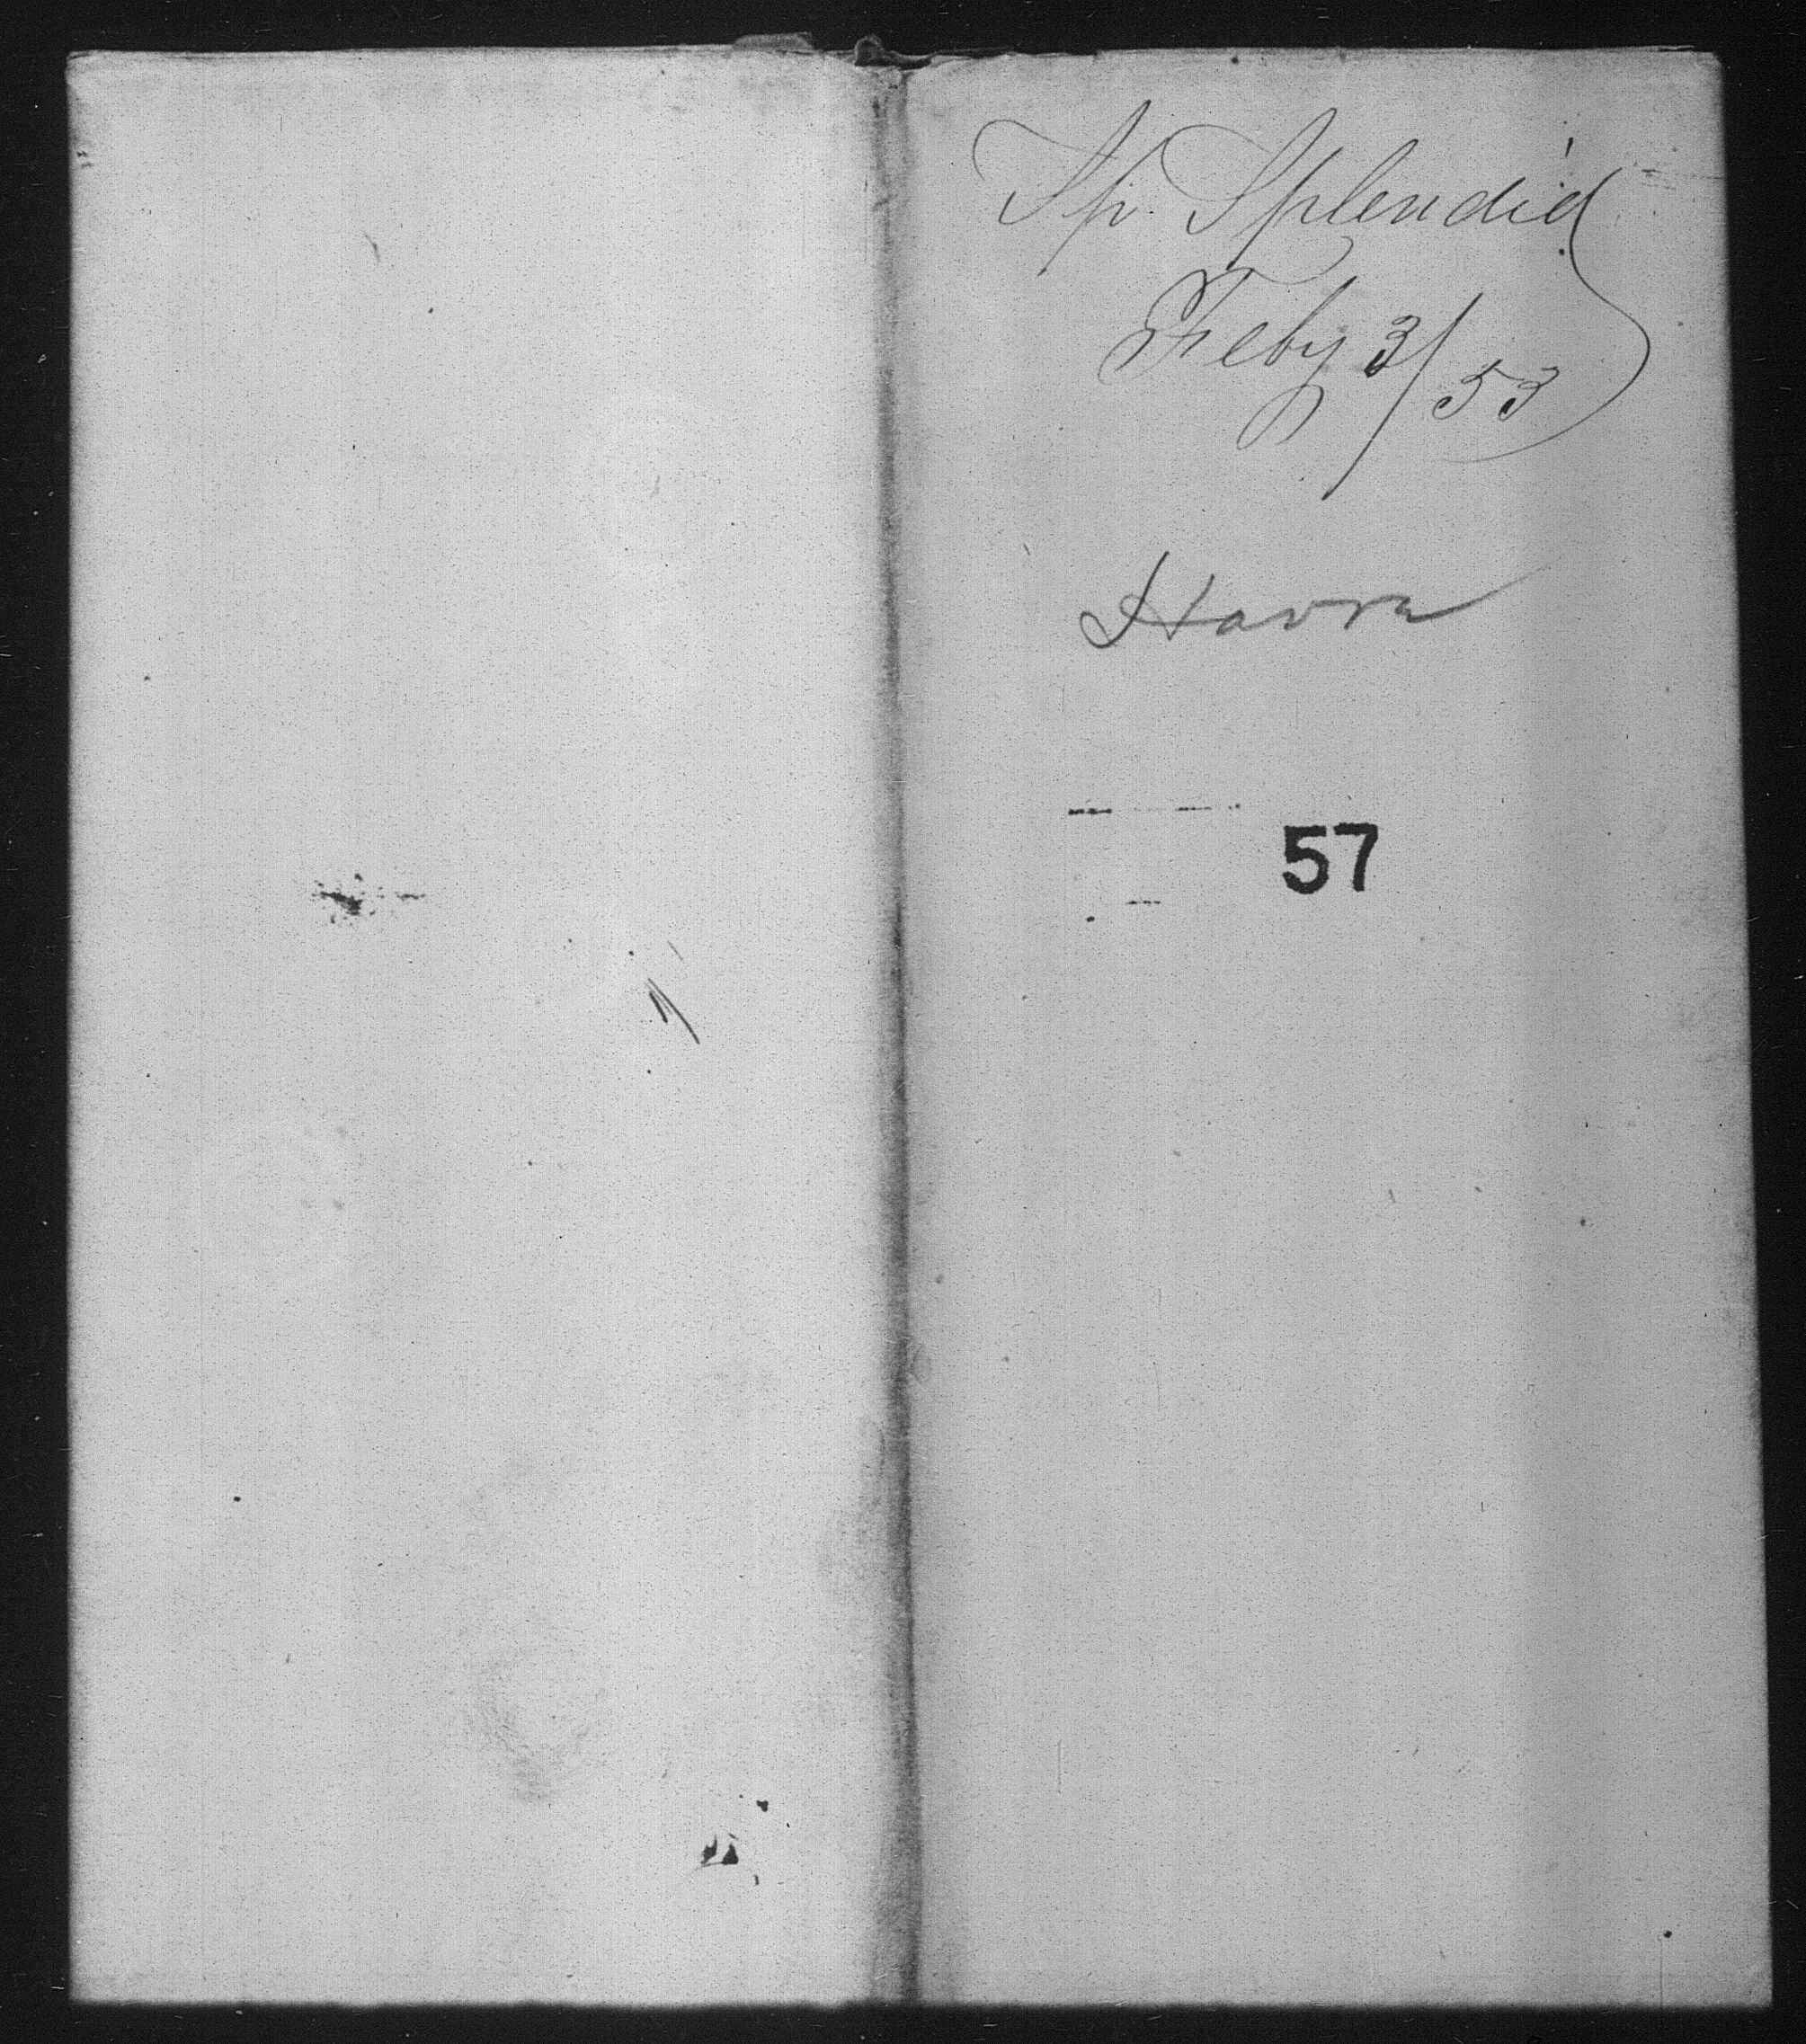 Sp. Splendid
Feby 3/53
Havre
57